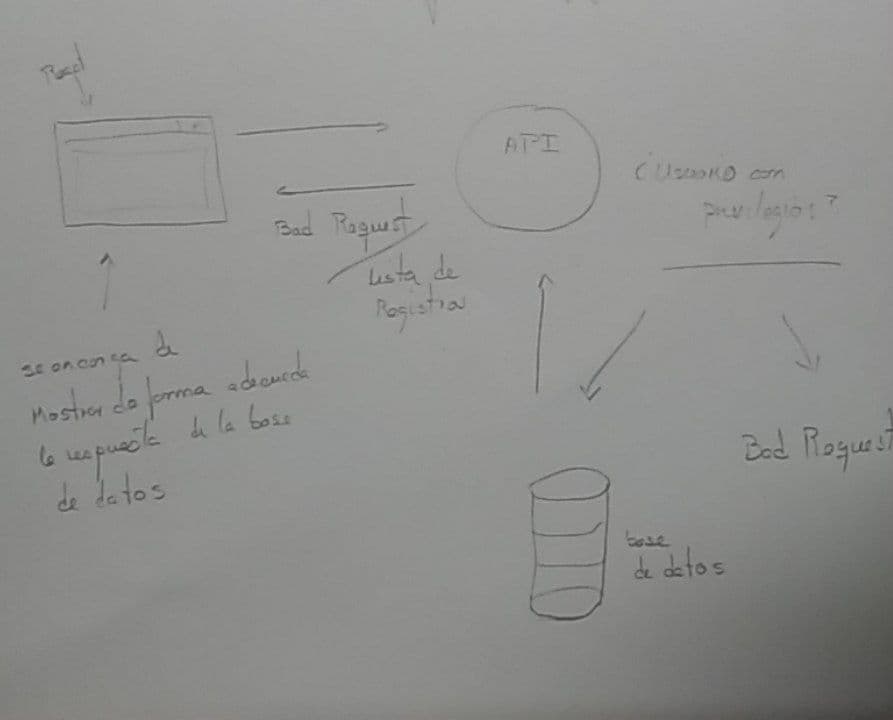 API
¿Usuario con
privilegios?
Bad Request
Lista de
Registros
se encarga de
Mostrar de forma adecuada
la respuesta de la base
de datos
Bad Request
base
de datos